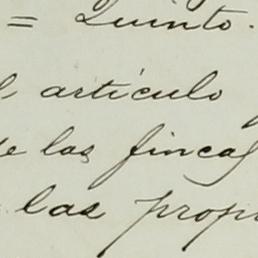 = Quinto.
l artículo
e las fincas
las prop